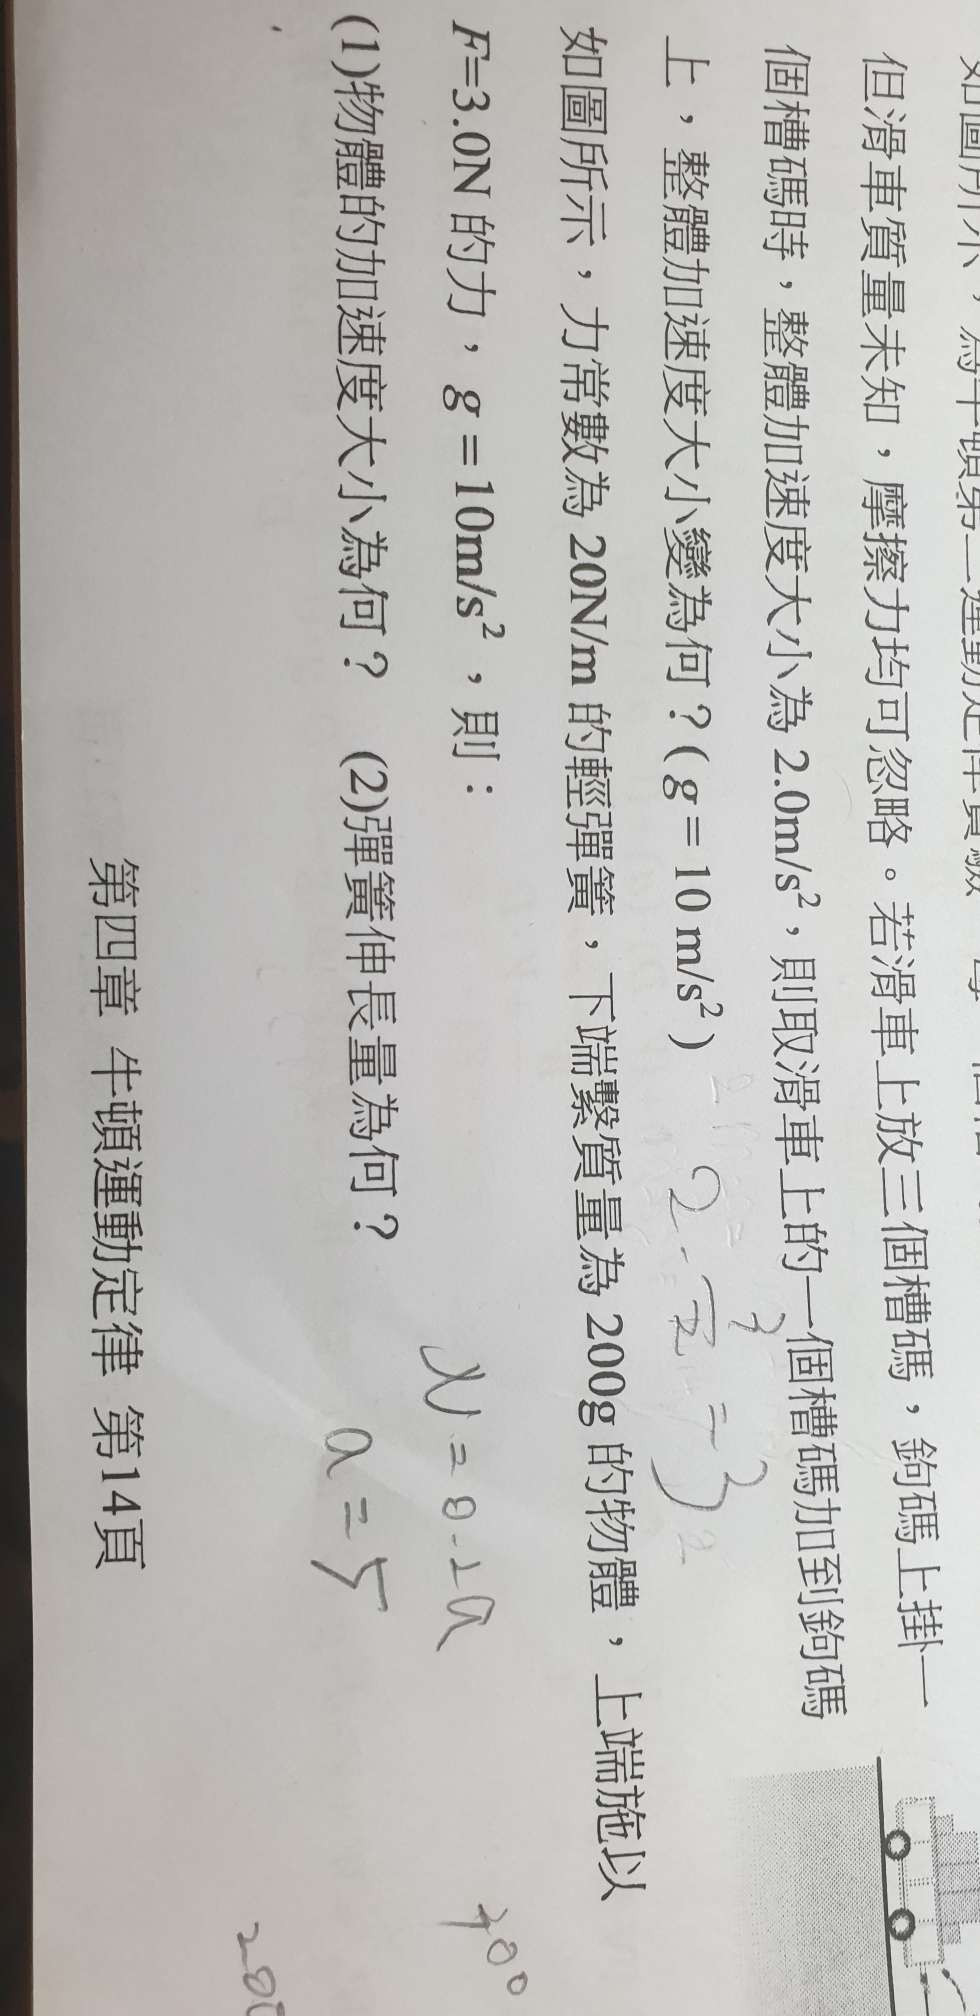 但滑車質量未知，摩擦力均可忽略。若滑車上放三個槽碼，鉤碼上掛一
個槽碼時，整體加速度大小為 2.0m/s²，則取滑車上的一個槽碼加到鉤碼
上，整體加速度大小變為何？( g = 10 m/s² )
如圖所示，力常數為 20N/m 的輕彈簧，下端繫質量為 200g 的物體，上端施以
F=3.0N 的力，g = 10m/s²，則：
(1)物體的加速度大小為何？ (2)彈簧伸長量為何？
a = 5
第四章 牛頓運動定律 第14頁